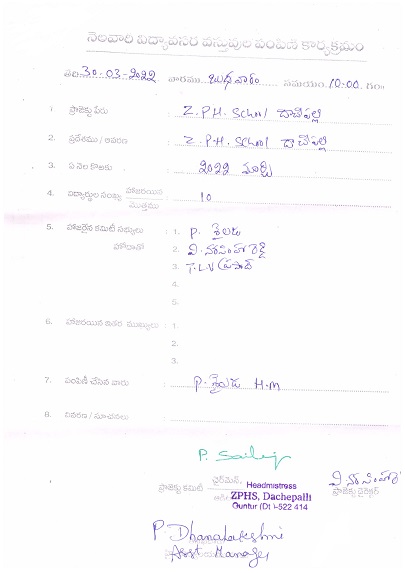 నెలవారి విద్యావసర వస్తువుల పంపిణీ కార్యక్రమం
తేది: 30-03-2022 వారము బుధవారం సమయం 10:00 గం
1. ప్రాజెక్టు పేరు : Z.P.H. School దాచేపల్లి
2. ప్రదేశము / ఆవరణ : Z.P.H. School దాచేపల్లి
3. ఏ నెల కొరకు : 2022 మార్చు
4. విద్యార్థుల సంఖ్య హాజరయిన / మొత్తము : 10
5. హాజరైన కమిటీ సభ్యులు : 1. P. శైలజ
హోదాతో 2. వి. నరసింహారెడ్డి
3. T.L.V ప్రసాద్
4.
5.
6. హాజరయిన ఇతర ముఖ్యులు : 1.
2.
3.
7. పంపిణీ చేసిన వారు : P. శైలజ H.M
8. వివరణ / సూచనలు :
P. Sailaja
ప్రాజెక్టు కమిటీ చైర్‌మెన్, Headmistress
ZPHS, Dachepalli
Guntur (Dt)-522 414
వి. నరసింహా
ప్రాజెక్టు డైరెక్టర్
P Dhanalakshmi
Asst Manager